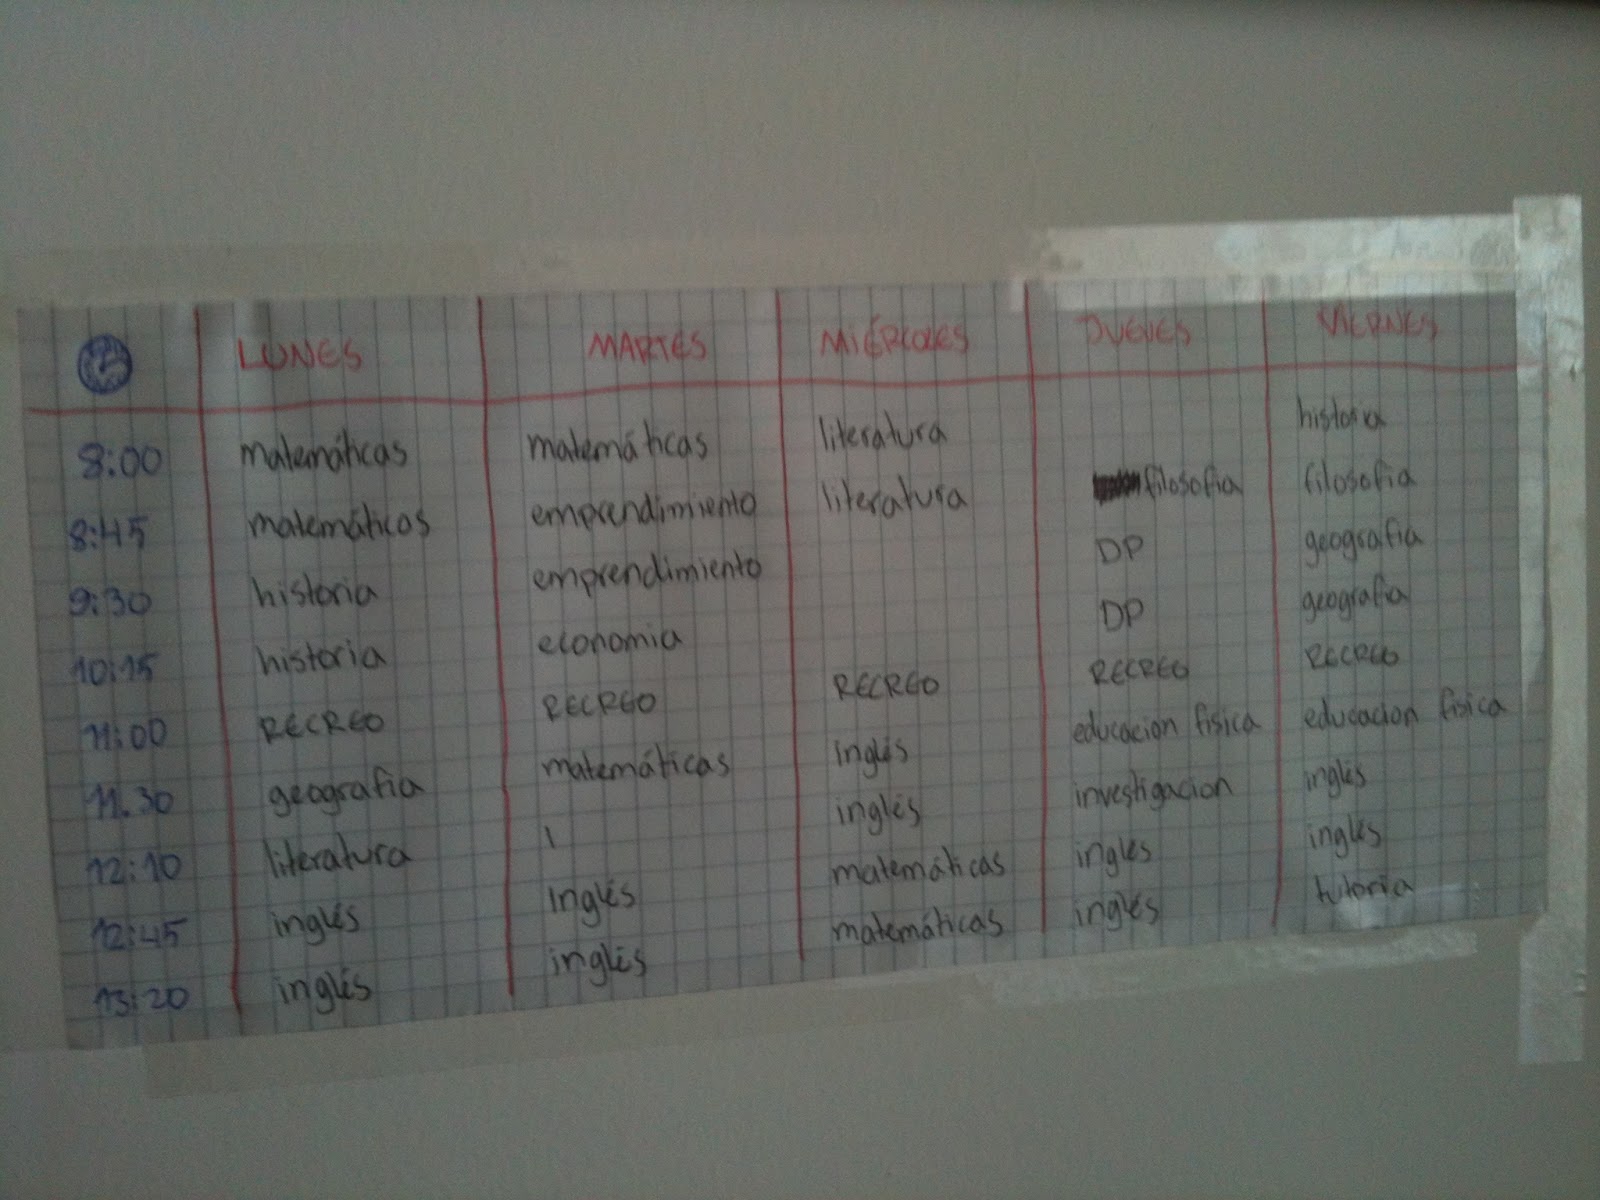 LUNES MARTES MIÉRCOLES JUEVES VIERNES
8:00 matemáticas matemáticas literatura historia
8:45 matemáticas emprendimiento literatura filosofia filosofia
9:30 historia emprendimiento DP geografia
10:15 historia economia DP geografia
11:00 RECREO RECREO RECREO RECREO RECREO
11.30 geografia matemáticas inglés educacion fisica educacion fisica
12:10 literatura inglés investigacion inglés
12:45 inglés Inglés matemáticas ingles inglés
13:20 inglés inglés matemáticas inglés tutoria